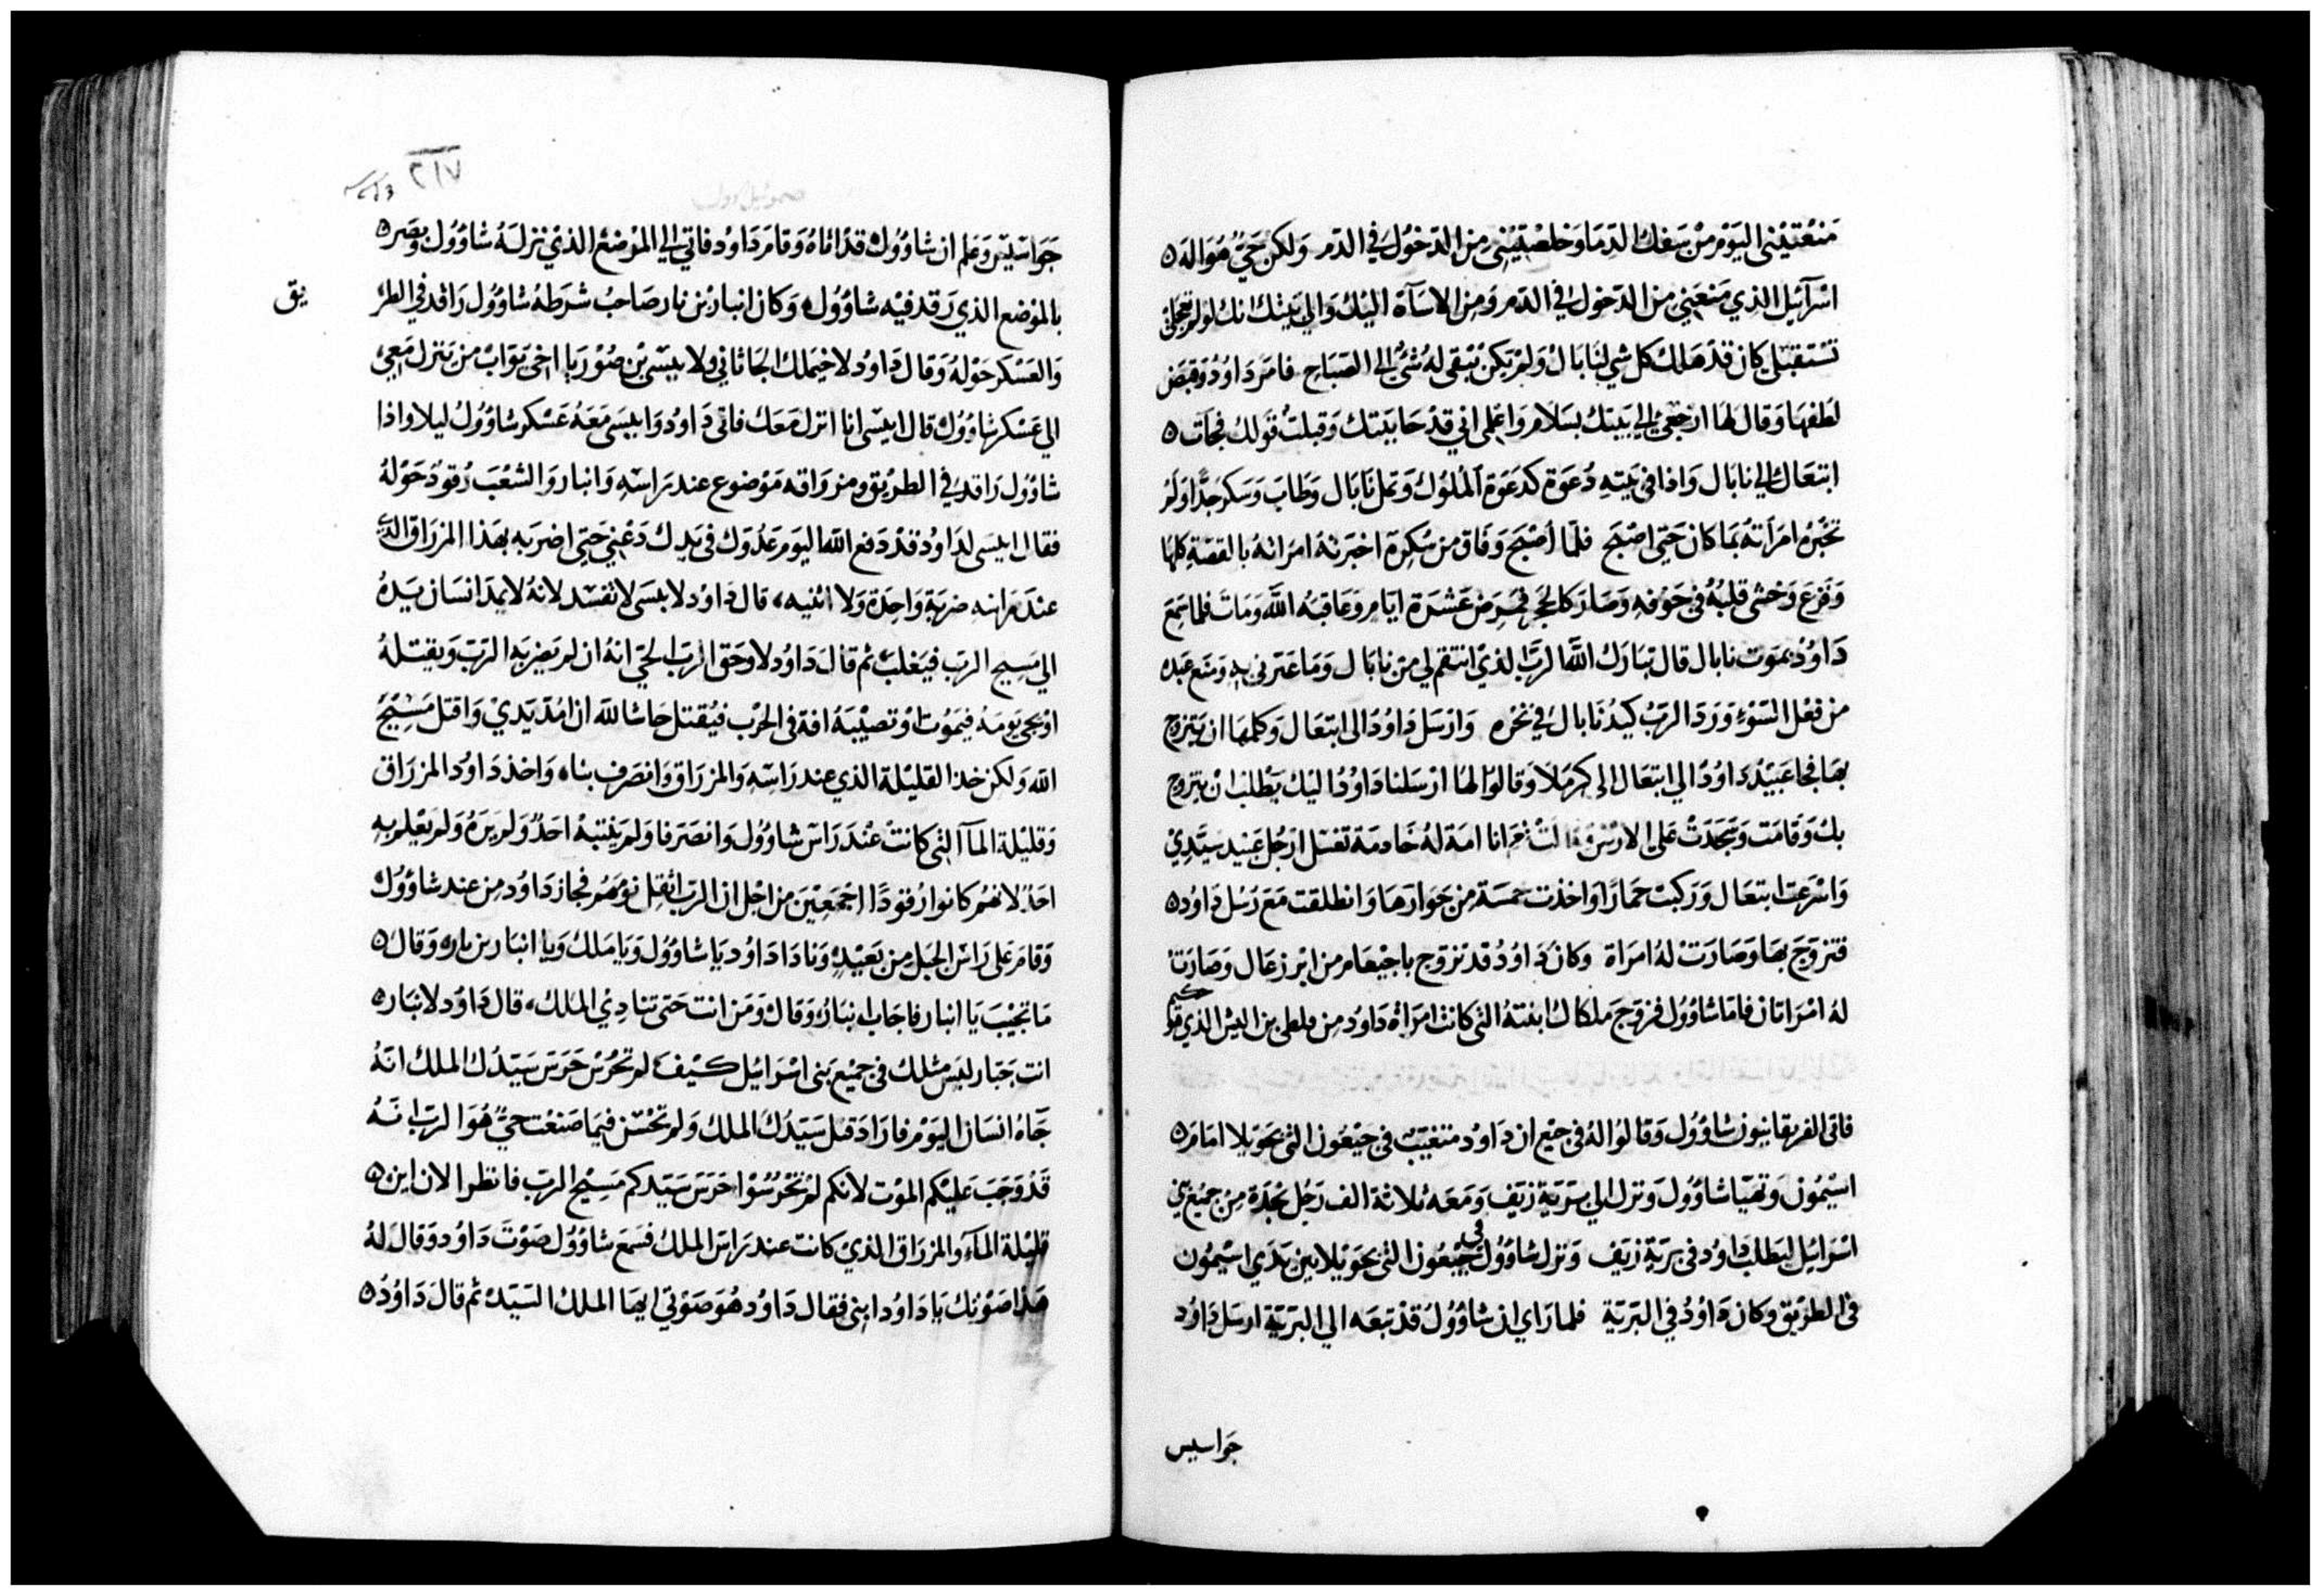 منعتيني اليوم من سفك الدما وخلصتيني من الدخول في الدم ولكن حي هو اله
اسرآئيل الذي منعني من الدخول في الدم ومن الاسآة اليك والي بيتك انك لو لم تعجلي
تستقبلي كان قد هلك كل شي لنابال ولم يكن يبقى له شي الي الصباح فامر داوود وقبض
لطفها وقال لها ارجعي الي بيتك بسلام واعلمي اني قد حابيتك وقبلت قولك فجات
ابتغال الي نابال واذا في بيته دعوة كدعوة الملوك وثمل نابال وطاب وسكر جدا ولم
تخبره امرأته بما كان حتى اصبح فلما أصبح وفاق من سكره اخبرته امراته بالقصة كلها
وفزع وخشى قلبه في جوفه وصار كالحجر فمرض عشرة ايام وعاقبه الله ومات فلما سمع
داوود بموت نابال قال تبارك الله الرب الذي انتقم لي من نابال وما عيرني به ومنع عبده
من فعل السوء ورد الرب كيد نابال في نحره وارسل داوود الى ابتغال وكلمها ان يتزوج
بها فجا عبيد داوود الي ابتغال الى كرملا وقالوا لها ارسلنا داوود اليك يطلب ان يتزوج
بك وقامت وسجدت على الارض وقالت نعم انا امة له خادمة تغسل ارجل عبيد سيدي
واسرعت ابتغال وركبت حمارا واخذت خمسة من جوارها وانطلقت مع رسل داوود
فتزوج بها وصارت له امراة وكان داوود قد تزوج باجيعام من ابرزعال وصارتا
له امراتان فاما شاوول فزوج ملكال ابنته التي كانت امراة داوود من فلطى بن اليش الذي
فاتى الفريقانيون شاوول وقالوا له في جبع ان داوود متغيب في جبعون التي بحويلا امام
اسيمون وتهيا شاوول ونزل الي برية زيف ومعه ثلاثة الف رجل نجدة من جميع بني
اسرائيل ليطلب داوود في برية زيف ونزل شاوول في جبعون التي بحويلا بين يدي اسيمون
في الطريق وكان داوود في البرية فلما راي ان شاوول قد تبعه الي البرية ارسل داوود
جواسيس
٢١٧
جواسيس وعلم ان شاوول قد اتاه وقام داوود فاتي الي الموضع الذي نزله شاوول وبصر
بالموضع الذي رقد فيه شاوول وكان انبار بن نار صاحب شرطه شاوول راقد في الطر
يق
والعسكر حوله وقال داوود لاخيملك الجاثاني ولابيسى بن صوريا اخي يواب من ينزل معي
الي عسكر شاوول قال ابيسى انا انزل معك فاتى داوود وابيسى معه عسكر شاوول ليلا واذا
شاوول راقد في الطريق ومزراقه موضوع عند راسه وانبار والشعب رقود حوله
فقال ابيسى لداوود قد دفع الله اليوم عدوك في يدك دعني حتى اضربه بهذا المزراق الذي
عند راسه ضربة واحدة ولا اثنيه قال داوود لابيسى لا تفسد لانه لا يمد انسان يده
الي مسيح الرب فيغلب ثم قال داوود لا وحق الرب الحي انه ان لم يضربه الرب ويقتله
او يجي يومه فيموت او تصيبه افة في الحرب فيقتل حاشا لله ان امد يدي واقتل مسيح
الله ولكن خذ القليلة الذي عند راسه والمزراق وانصرف بنا واخذ داوود المزراق
وقليلة المآ التي كانت عند راس شاوول وانصرفا ولم ينتبه احد ولم يره ولم يعلم به
احد لانهم كانوا رقودا اجمعين من اجل ان الرب اثقل نومهم فجاز داوود من عند شاوول
وقام على راس الجبل من بعيد ونادا داوود يا شاوول ويا ملك ويا انبار بن نار وقال
ما تجيب يا انبار فاجاب انبار وقال ومن انت حتى تنادي الملك قال داوود لانبار
انت جبار ليس مثلك في جميع بني اسرائيل كيف لم تحرس حرس سيدك الملك انه
جاه انسان اليوم فاراد قتل سيدك الملك ولم تحسن فيما صنعت حي هو الرب انه
قد وجب عليكم الموت لانكم لم تحرسوا حرس سيدكم مسيح الرب فانظر الان اين
قليلة المآء والمزراق الذي كانت عند راس الملك فسمع شاوول صوت داوود وقال له
هذا صوتك يا داوود ابني فقال داوود هو صوتي ايها الملك السيد ثم قال داوود